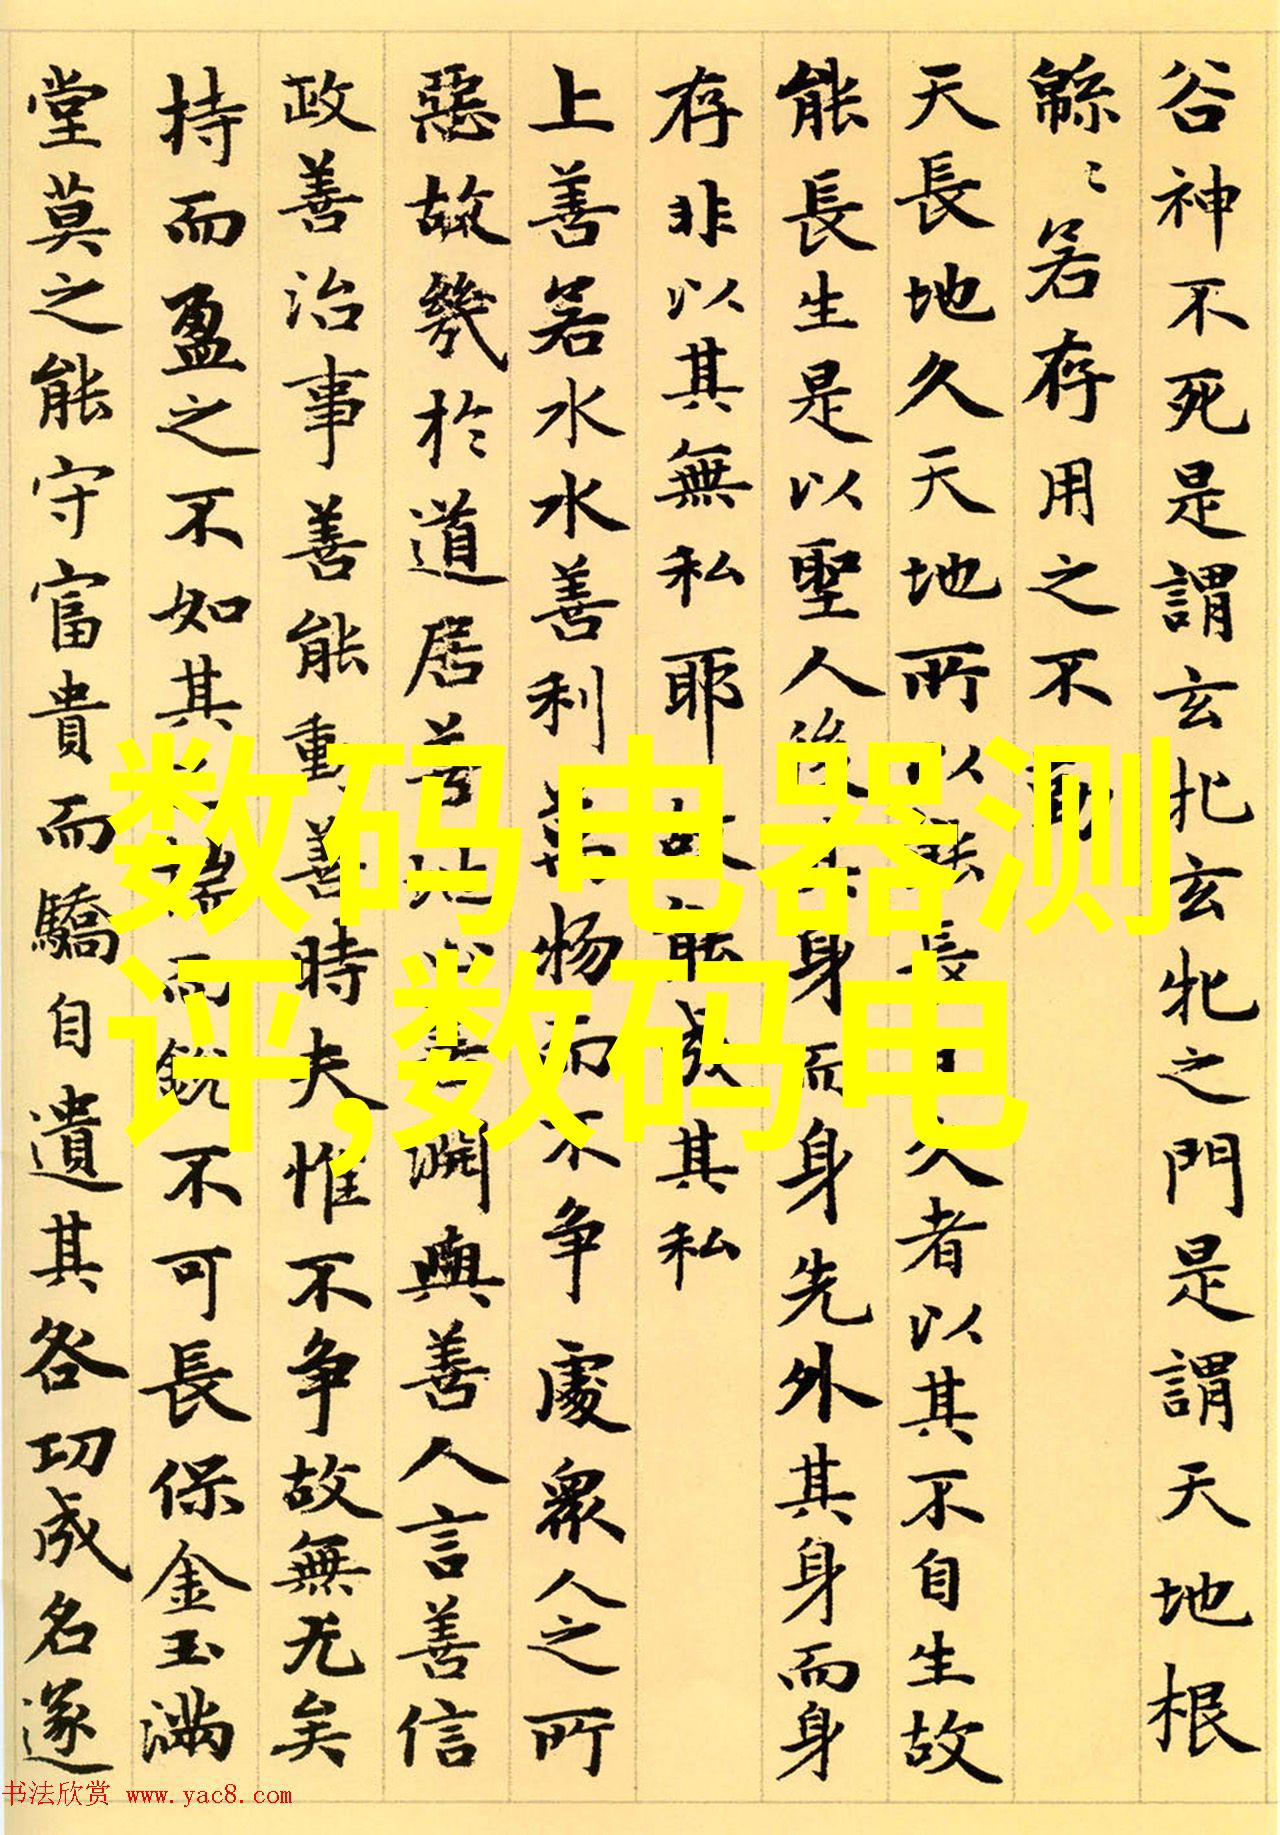 谷神不死是謂玄牝玄牝之門是謂天地根
緜〻若存用之不勤
天長地久天地所以能長且久者以其不自生故
能長生是以聖人後其身而身先外其身而身
存非以其無私耶故能成其私
上善若水水善利萬物而不争處眾人之所
惡故幾於道居善地心善淵與善人言善信
政善治事善能動善時夫惟不争故無尤矣
持而盈之不如其揣而銳不可長保金玉滿
堂莫之能守富貴而驕自遺其咎功成名遂
数码电器测
评,数码电
书法欣赏 www.yac8.com